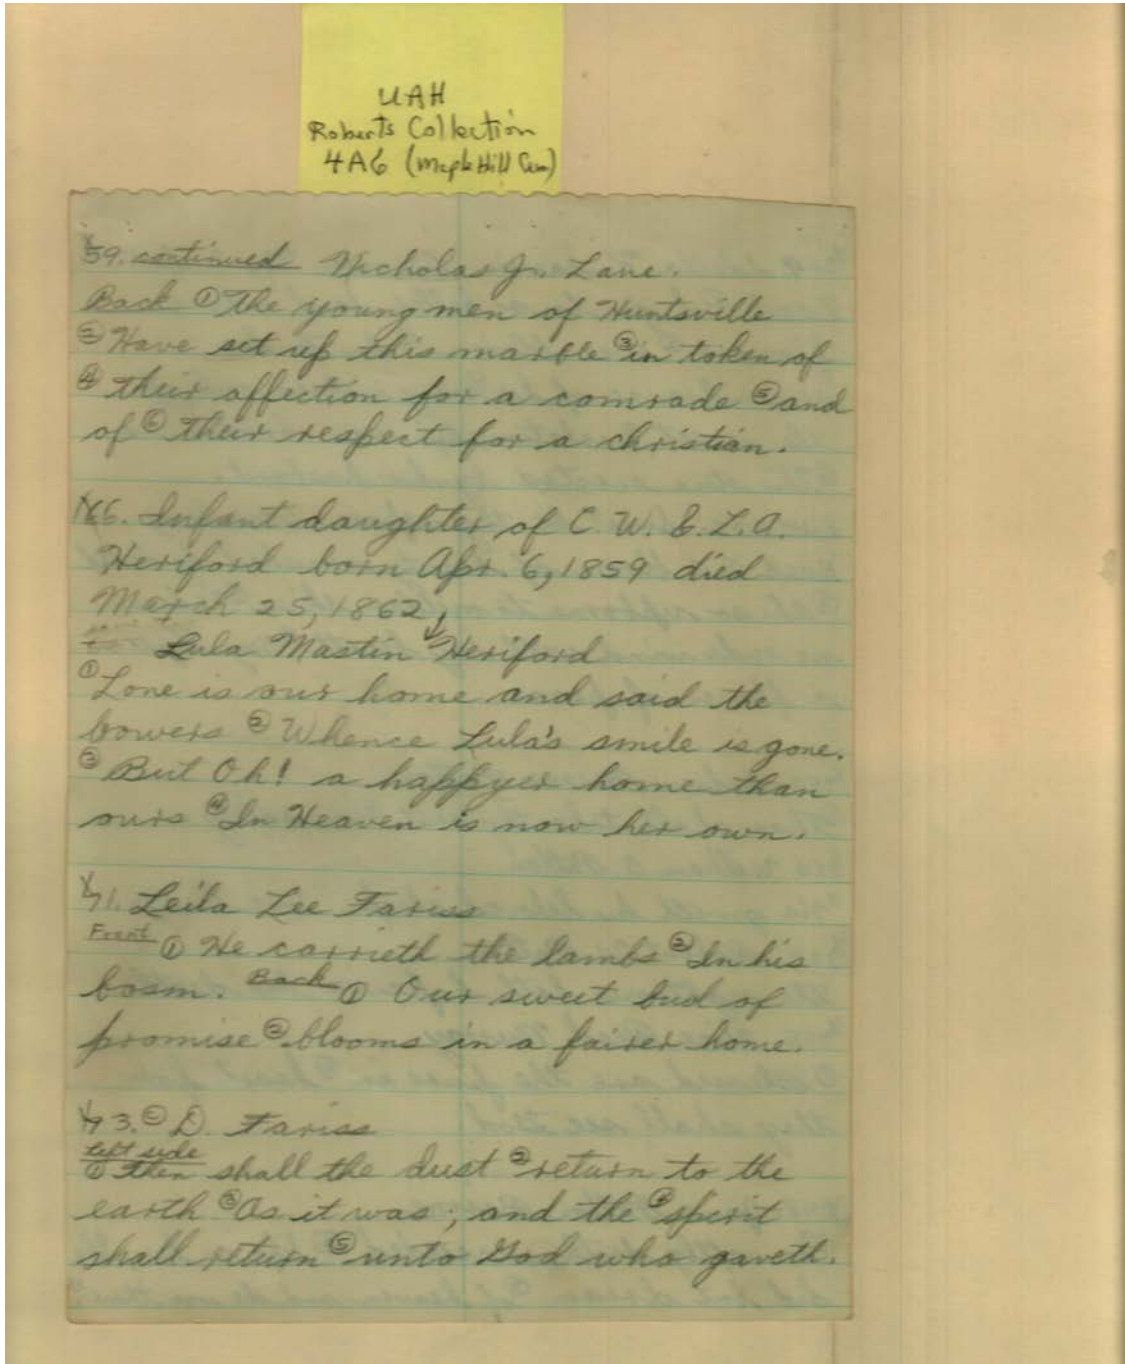 UAH
Roberts Collection
4A6 (Maple Hill Cem)
59. continued Nicholas Jr. Lane.
Back ① The young men of Huntsville
② Have set up this marble ③ in token of
④ their affection for a comrade ⑤ and
of ⑥ their respect for a christian.
66. Infant daughter of C. W. & L. A.
Heriford born Apr. 6, 1859 died
March 25, 1862,
Lula Mastin Heriford
① Lone is our home and said the
bowers ② Whence Lula's smile is gone.
③ But Oh! a happyer home than
ours ④ In Heaven is now her own.
71. Leila Lee Fariss
Front ① He carrieth the lambs ② In his
bosm. Back ① Our sweet bud of
promise ② blooms in a fairer home.
73. D. Fariss
Left side
① then shall the dust ② return to the
earth ③ As it was; and the ④ sperit
shall return ⑤ unto God who gaveth.